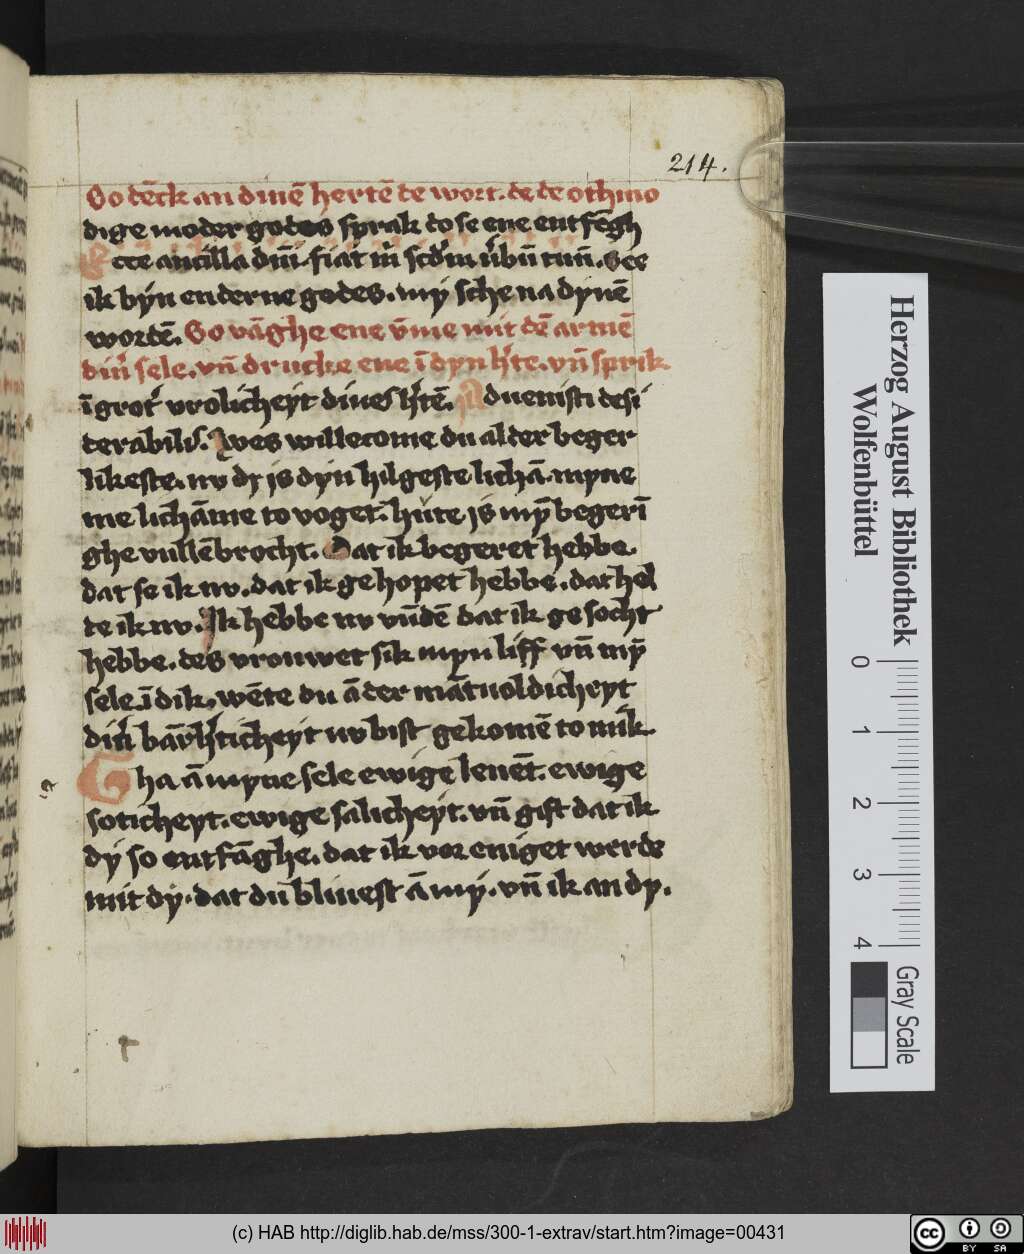 214.
So dēck an dinē hertē de wort. de de othmo
dige moder godes sprak do se ene entfēgh
Ecce ancilla dnī. fiat m̄ scdm̄ v̓bū tuū. See
ik byn en derne godes. my sche na dynē
wordē. So vāghe ene v̄me mit dē armē
din̓ sele. vn̄ drucke ene ī dyn h̓te. vn̄ sprik
ī grot̓ vrolicheyt dines h̓tē. Aduenisti desi
derabilis. Wes willecome du alder beger
likeste. nv dy is dyn hilgeste lichā. myne
me lichāme to voget. hute is mȳ begerī
ghe vullēbrocht. Dat ik begeret hebbe.
dat se ik nv. dat ik gehopet hebbe. dat hol
de ik nv. Ik hebbe nv vūdē dat ik ge socht
hebbe. des vrouwet sik myn liff vn̄ mȳ
sele ī dik. wēte du ā der māıuoldicheyt
din̓ barmh̓ticheyt nv bist gekomē to mik.
Gha ā myne sele ewige leuēt. ewige
soticheyt. ewige salicheyt. vn̄ gift dat ik
dy so entfāghe. dat ik vor eniget werde
mit dy. dat du bliuest ā my. vn̄ ik an dy.
Herzog August Bibliothek
Wolfenbüttel
0 1 2 3 4
Gray Scale
(c) HAB http://diglib.hab.de/mss/300-1-extrav/start.htm?image=00431
cc BY SA